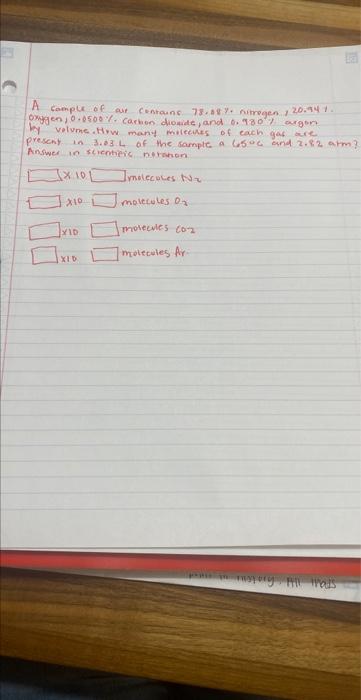 A sample of air contains 78.08% nitrogen, 20.94%
oxygen, 0.0500%. Carbon dioxide, and 0.930% argon
by volume. How many molecules of each gas are
present in 3.03 L of the sample a 65°C and 2.82 atm?
Answer in scientific notation
x 10 molecules N2
x10 molecules O2
x10 molecules CO2
x10 molecules Ar.
history. All trials